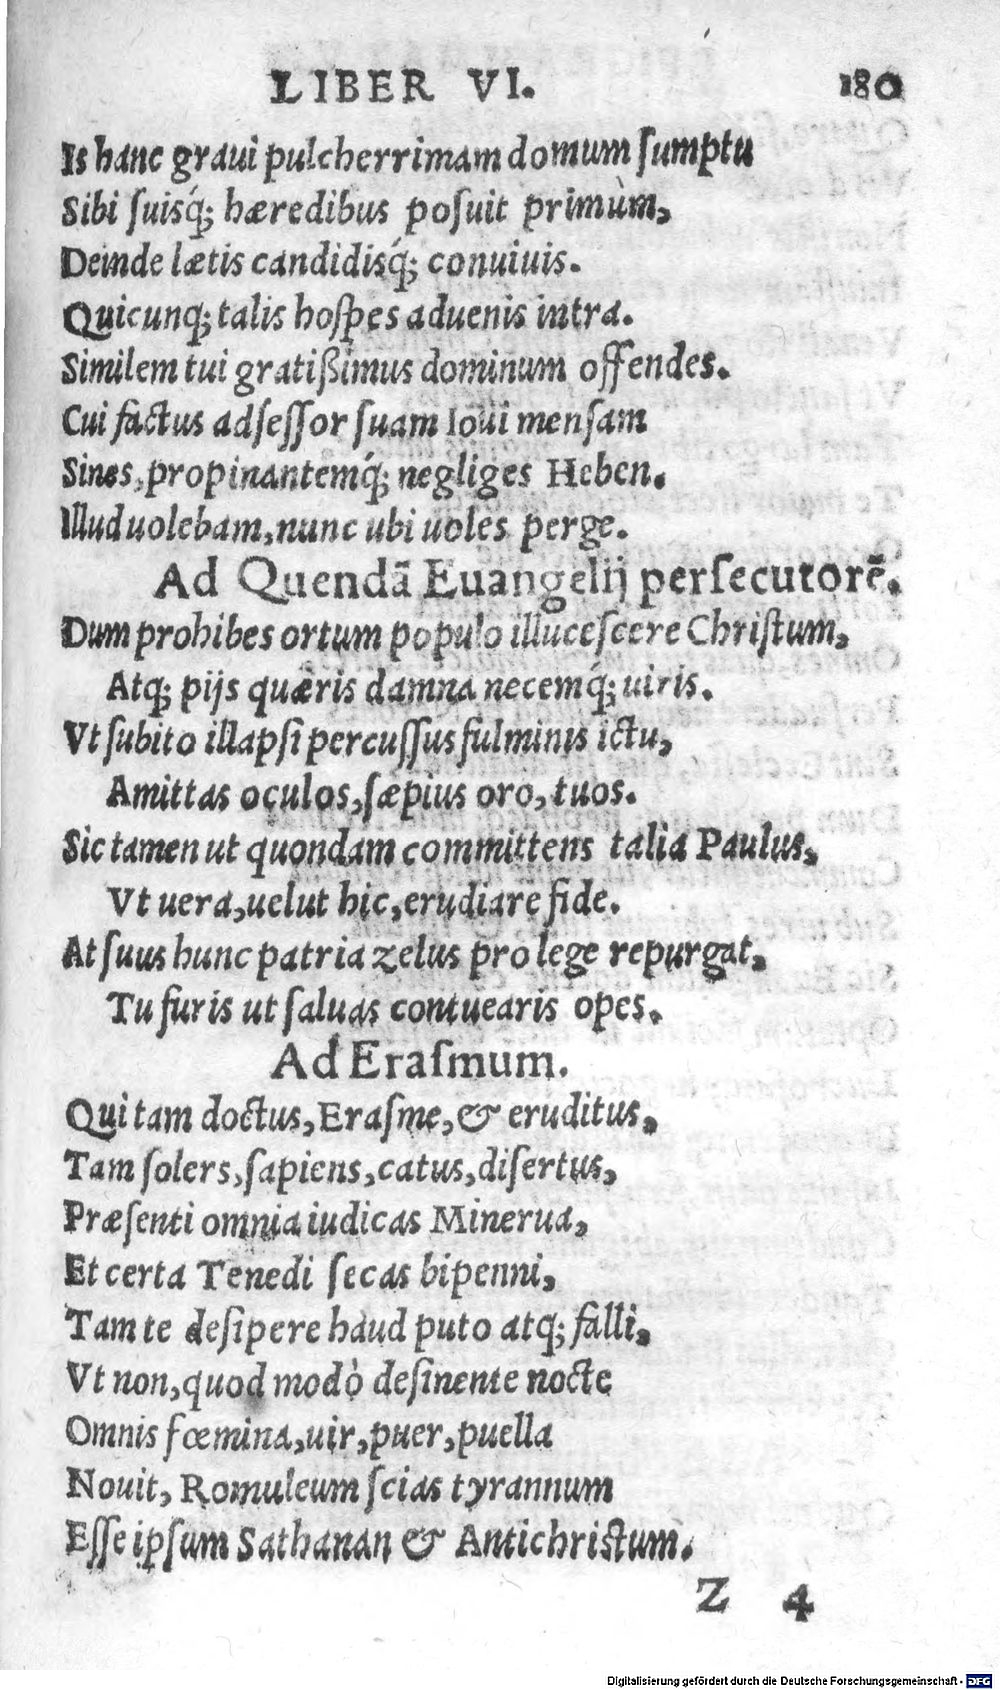 LIBER VI. 180
Is hanc graui pulcherrimam domum ſumptu
Sibi ſuisq́; hæredibus poſuit primùm,
Deinde lætis candidisq́; conuiuis.
Quicunq; talis hoſpes aduenis intra.
Similem tui gratißimus dominum offendes.
Cui factus adſeſſor ſuam Ioui menſam
Sines, propinantemq́; negliges Heben.
Illud uolebam, nunc ubi uoles perge.
Ad Quendā Euangelij perſecutorē.
Dum prohibes ortum populo illuceſcere Chriſtum,
Atq; pijs quæris damna necemq́; uiris.
Vt ſubito illapſi percuſſus fulminis ictu,
Amittas oculos, ſæpius oro, tuos.
Sic tamen ut quondam committens talia Paulus,
Vt uera, uelut hic, erudiare fide.
At ſuus hunc patria zelus pro lege repurgat,
Tu furis ut ſaluas contuearis opes.
Ad Eraſmum.
Qui tam doctus, Eraſme, & eruditus,
Tam ſolers, ſapiens, catus, diſertus,
Præſenti omnia iudicas Minerua,
Et certa Tenedi ſecas bipenni,
Tam te deſipere haud puto atq; falli,
Vt non, quod modò deſinente nocte
Omnis fœmina, uir, puer, puella
Nouit, Romuleum ſcias tyrannum
Eſſe ipſum Sathanan & Antichriſtum.
Z 4
Digitalisierung gefördert durch die Deutsche Forschungsgemeinschaft - DFG